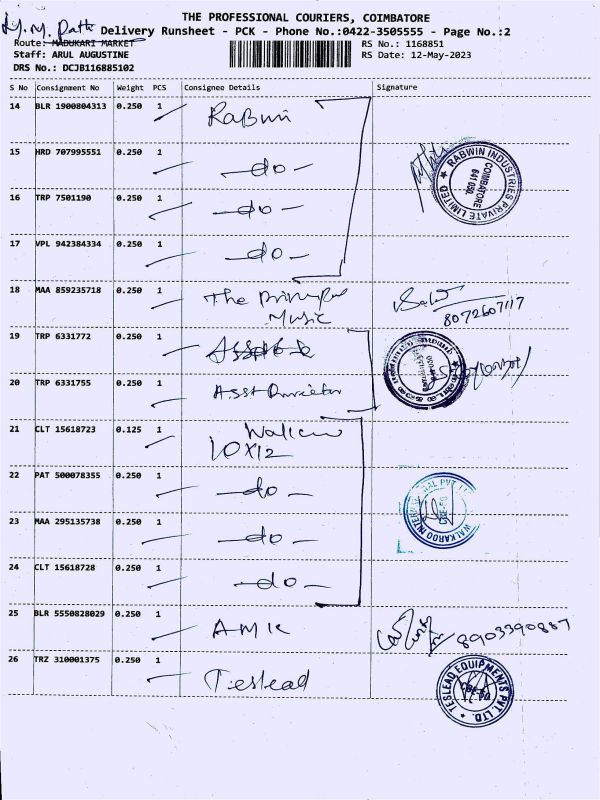 THE PROFESSIONAL COURIERS, COIMBATORE
Delivery Runsheet - PCK - Phone No.:0422-3505555 - Page No.:2
Route: MADUKARI MARKET
Staff: ARUL AUGUSTINE
DRS No.: DCJB116885102
RS No.: 1168851
RS Date: 12-May-2023
S No Consignment No Weight PCS Consignee Details Signature
14 BLR 1900804313 0.250 1 Rabwin
RABWIN INDUSTRIES PRIVATE LIMITED ★
COIMBATORE
641 050.
15 HRD 707995551 0.250 1 -do-
16 TRP 7501190 0.250 1 -do-
17 VPL 942384334 0.250 1 -do-
18 MAA 859235718 0.250 1 The Principal
Music
8072607117
19 TRP 6331772 0.250 1
20 TRP 6331755 0.250 1 Asst Director
21 CLT 15618723 0.125 1
10x12
22 PAT 500078355 0.250 1 -do-
WALKAROO
23 MAA 295135738 0.250 1 -do-
24 CLT 15618728 0.250 1 -do-
25 BLR 5550828029 0.250 1 8903390887
26 TRZ 310001375 0.250 1 Teslead
TESLEAD EQUIPMENTS PVT. LTD. ★